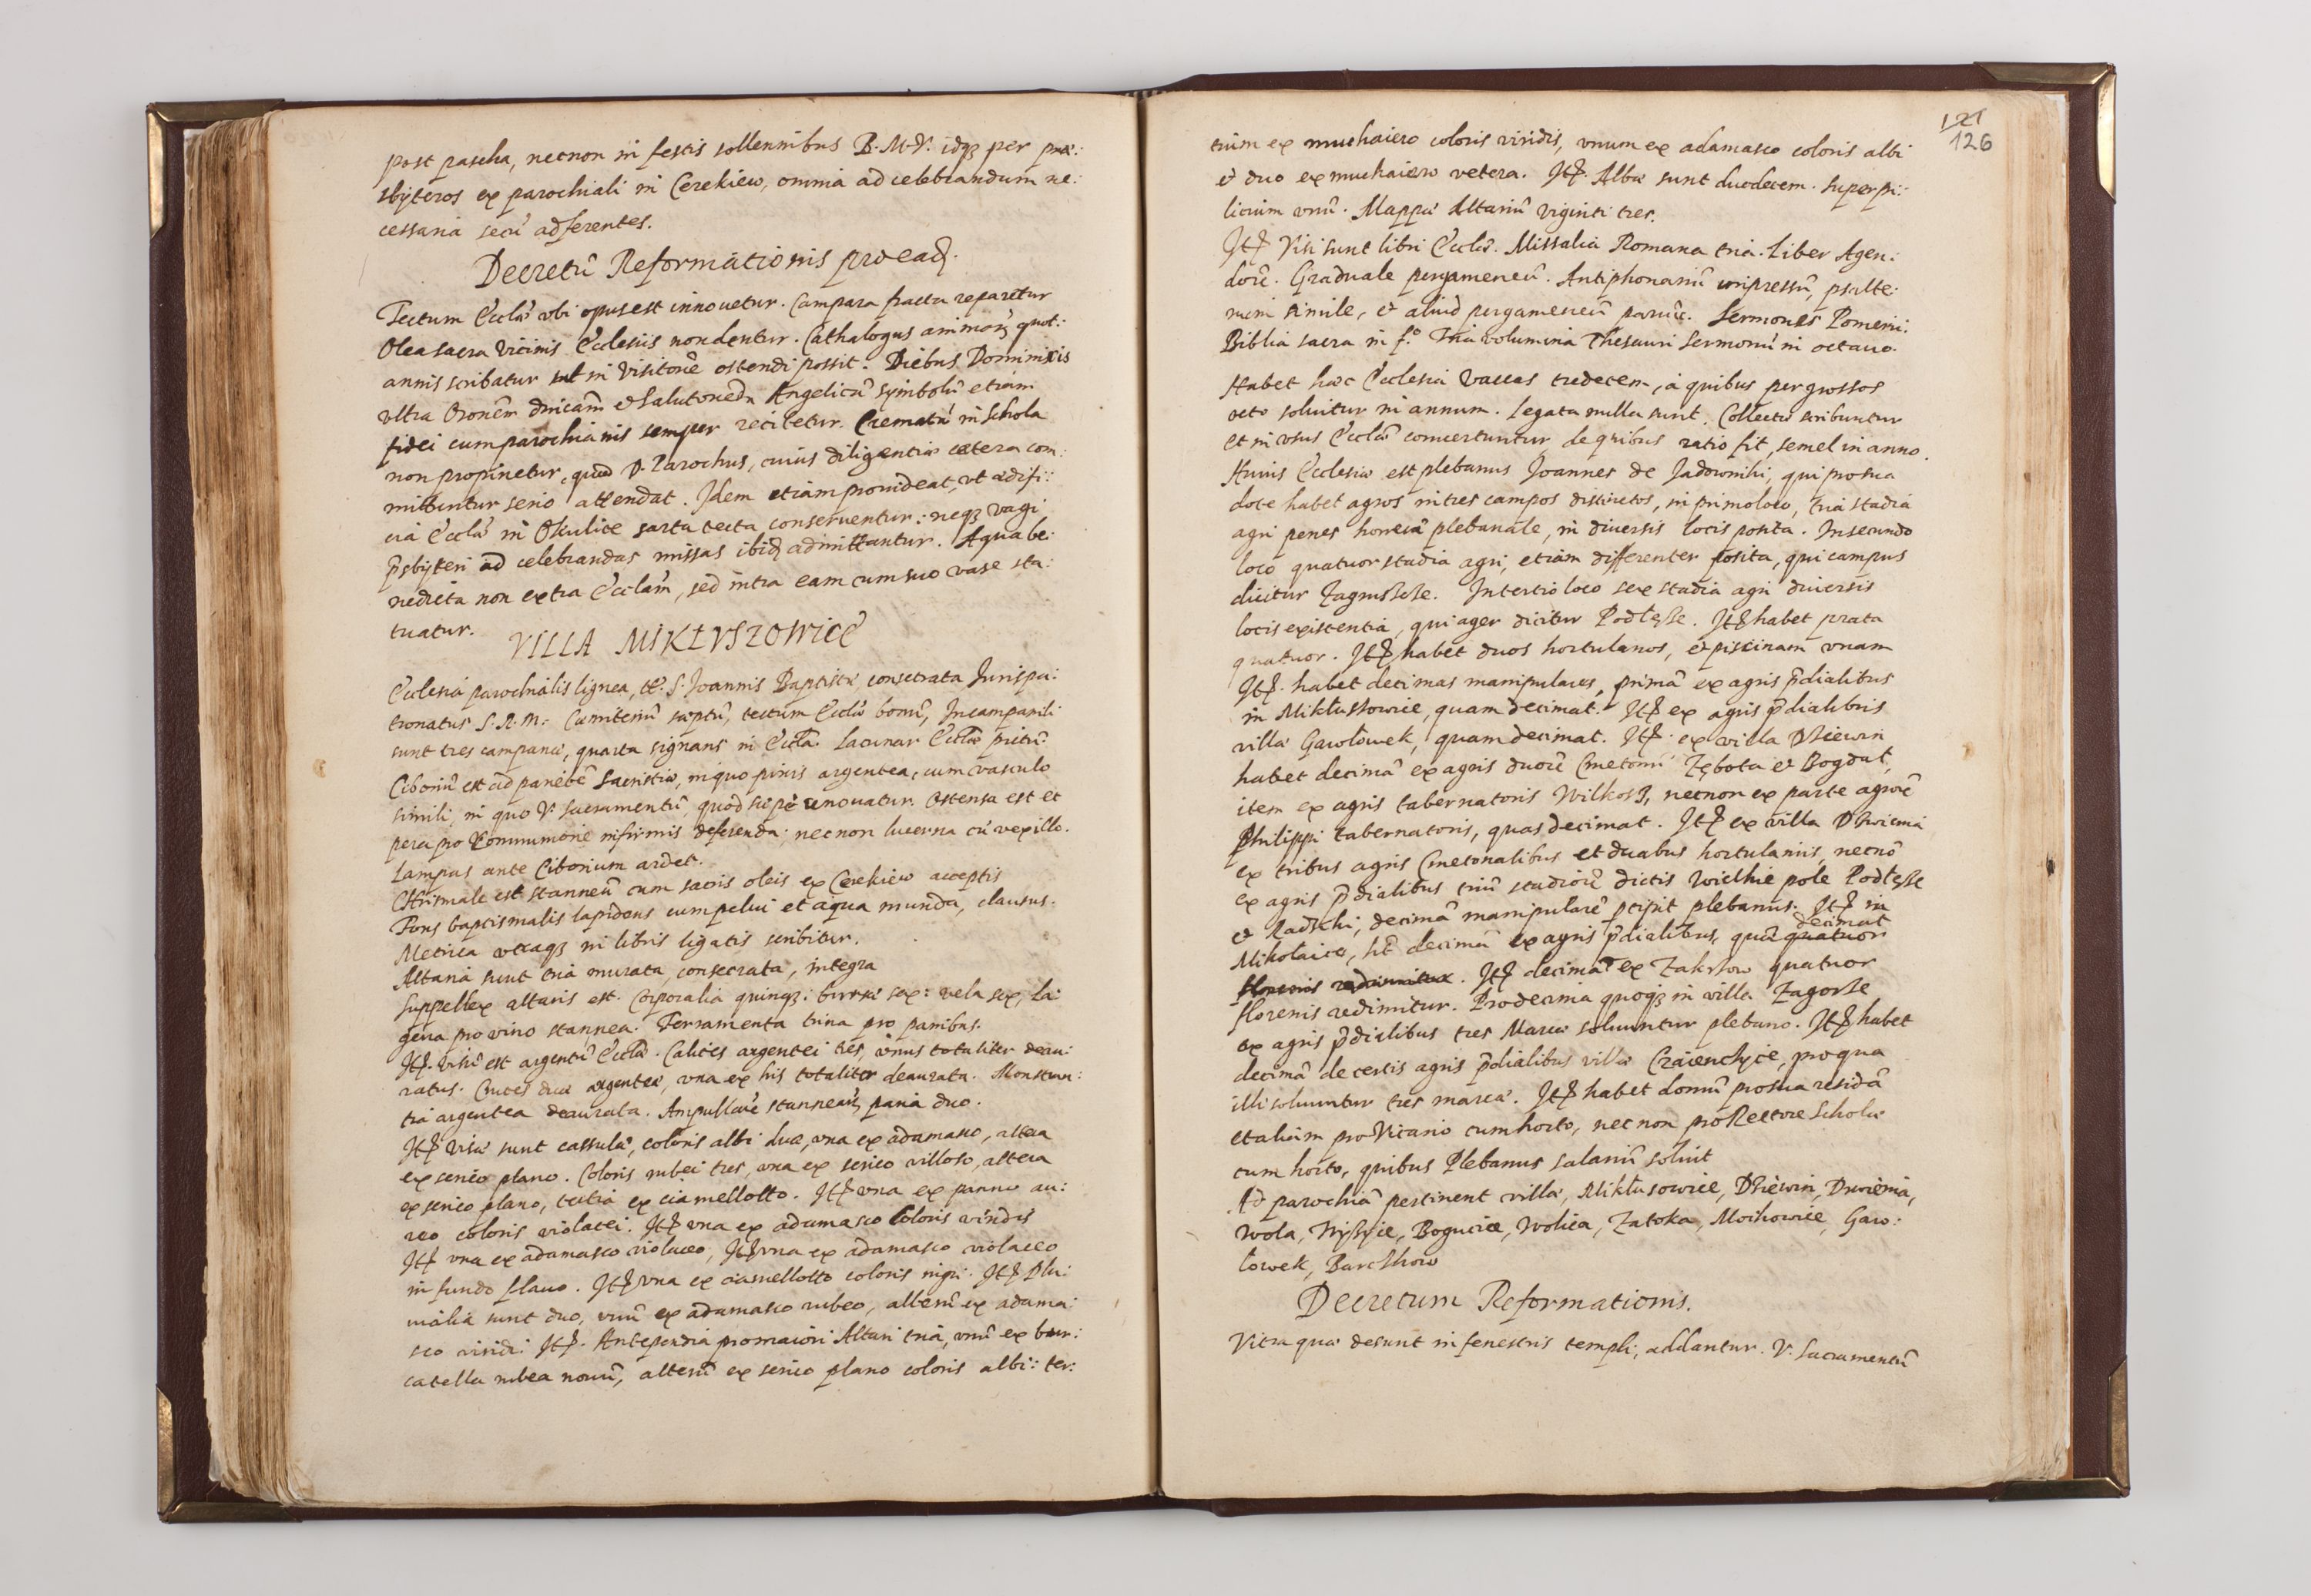 post pascha, necnon in festis sollennibus B. M. V. idq₃ per præ:
sbyteros ex parochiali in Cerekiew, omnia ad celebrandum ne:
cessaria secũ adferentes.
Decretũ Reformationis pro ead.
Tectum Eccłæ vbi opus est innouetur. Campana fracta reparetur
Olea sacra vicinis Ecclesiis non dentur. Cathalogus animarũ quot:
annis scribatur in Visitone ostendi possit. Diebus Dominicis
vltra Oronem dnicam et Salutonem Angelicã symbolũ etiam
fidei cum parochianis semper recitetur. Crematũ in Schola
non propinetur, quod V. Parochus, cuius diligentiæ cætera com:
mittuntur serio attendat. Idem etiam prouideat, vt ædifi:
cia Eccłæ in Okulice sarta tecta conseruentur: neq₃ vagi
p̃sbyteri ad celebrandas missas ibid admittantur. Aqua be:
nedicta non extra Eccłam, sed intra eam cum suo vase sta:
tuatur.
VILLA MIKŁVSZOWICE
Ecclesia parochialis lignea, tt. S. Joannis Baptistæ, consecrata Jurispa:
tronatus S. R. M. Cæmiteriũ sæptũ, tectum Eccłæ bonũ, In campanili
sunt tres campanæ, quarta signans in Eccła. Lacunar Eccłæ pictũ.
Ciboriũ est ad parietẽ Sacristiæ, in quo pixis argentea, cum vasculo
simili, in quo V. Sacramentũ, quod sæpe renouatur. Ostensa est et
pera pro Communione infirmis deferenda: necnon lucerna cũ vexillo.
Lampas ante Ciborium ardet.
Chrismale est stanneũ cum sacris oleis ex Cerekiew acceptis
Fons baptismalis lapideus cum pelui et aqua munda, clausus.
Metrica vtraq₃ in libris ligatis scribitur.
Altaria sunt tria murata, consecrata, integra
Suppellex altaris est. Corporalia quinq₃: bursæ sex: vela sex, la:
gena pro vino stannea. Ferramenta trina pro panibus.
Itē. visũ est argentũ Eccłæ. Calices argentei tres, vnus totaliter deau:
ratus. Cruces duæ argenteæ, vna ex his totaliter deaurata. Monstran:
tia argentea deaurata. Ampullarũ stannearũ paria duo.
Itē visæ sunt cassulæ, coloris albi duæ, vna ex adamasco, altera
ex serico plano. Coloris rubei tres, vna ex serico villoso, altera
ex serico plano, tertia ex ciamellotto. Itē vna ex panno au:
reo coloris violacei. Itē vna ex adamasco coloris viridis
Itē vna ex adamasco violaceo, Itē vna ex adamasco violaceo
in fundo flauo. Itē vna ex ciamellotto coloris nigri. Itē Plu:
uialia sunt duo, vnũ ex adamasco rubeo, alterũ ex adama:
sco viridi. Itē. Antependia pro maiori Altari tria, vnũ ex bur:
catella rubea nouũ, alterũ ex serico plano coloris albi: ter:
121
126
tium ex muchaiero coloris viridis, vnum ex adamasco coloris albi
et duo ex muchaiero vetera. Itē. Albæ sunt duodecem. Superpi:
liceum vnũ. Mappæ Altariũ viginti tres.
Itē Visi sunt libri Eccłæ. Missalia Romana tria. Liber Agen:
dorũ. Graduale pergameneũ. Antiphonariũ impressũ, psalte:
rium simile, et aliud pergameneũ paruũ. Sermones Pomerii.
Biblia sacra in f.º Tria volumina Thesauri Sermonũ in octauo.
Habet hæc Ecclesia vaccas tredecem, a quibus per grossos
octo soluitur in annum. Legata nulla sunt. Collectæ scribuntur
et in vsus Eccłæ conuertuntur, de quibus ratio fit, semel in anno.
Huius Ecclesiæ est plebanus Joannes de Jadowniki, qui pro sua
dote habet agros in tres campos distinctos, in primo loco, tria stadia
agri penes horreũ plebanale, in diuersis locis posita. In secundo
loco quatuor stadia agri, etiam differenter posita, qui campus
dicitur Zagrusscze. In tertio loco sex stadia agri diuersis
locis existentia, qui ager dicitur Podłęsze. Itē habet prata
quatuor. Itē habet duos hortulanos, et piscinam vnam
Itē. habet decimas manipulares, primã ex agris p̃dialibus
in Mikłuszowice, quam decimat. Itē ex agris p̃dialibus
villæ Gawłowek, quam decimat. Itē. ex villa Dziewin
habet decimã ex agris duorũ Cmetonũ Zębota et Bogdał,
item ex agris tabernatoris Wilkosz, necnon ex parte agrorũ
Philippi tabernatoris, quas decimat. Itē ex villa Drwienia
ex tribus agris Cmetonalibus et duabus hortulaniis, necnõ
ex agris p̃dialibus triũ stadiorũ dictis Wielkie pole Podłęsze
et Radschi, decimã manipularẽ p̃cipit plebanus. Itē in
Mikolaice, ht decimã ex agris p̃dialibus, quã quatuor decimat
florenis redimitur. Itē decimã ex Zakrzow quatuor
florenis redimitur. Pro decima quoq₃ in villa Zagorze
ex agris p̃dialibus tres Marcæ soluuntur plebano. Itē habet
decimã de certis agris p̃dialibus villæ Czaienczyce, pro qua
illi soluuntur tres marcæ. Itē habet domũ pro sua residã
et aliam pro Vicario cum horto, nec non pro Rectore Scholæ
cum horto, quibus Plebanus salariũ soluit
Ad parochiã pertinent villæ, Mikłusowice, Dziewin, Drwienia,
Wola, Wyszyce, Bogucice, Wolica, Zatoka, Moikowice, Gaw:
łowek, Barczkow
Decretum Reformationis.
Vitra quæ desunt in fenestris templi, addantur. V. Sacramentũ